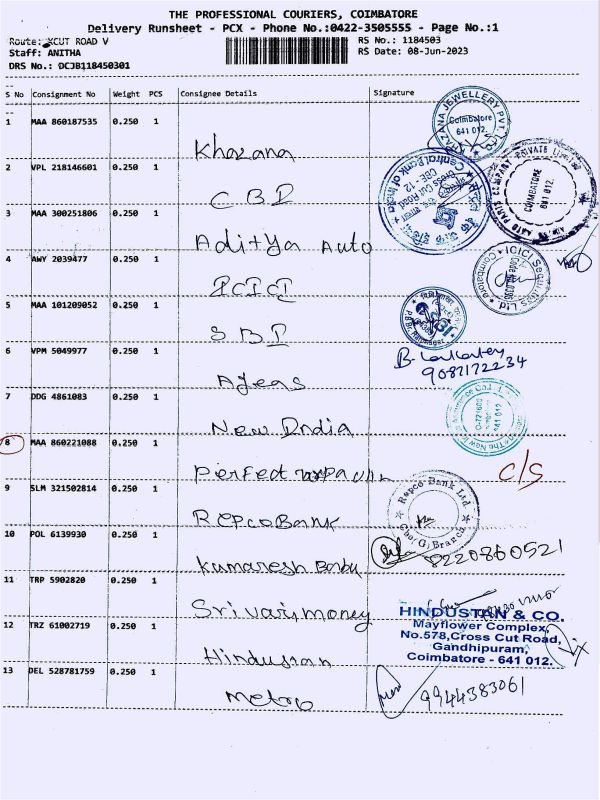 THE PROFESSIONAL COURIERS, COIMBATORE
Delivery Runsheet - PCX - Phone No.:0422-3505555 - Page No.:1
Route: XCUT ROAD V
RS No.: 1184503
Staff: ANITHA
RS Date: 08-Jun-2023
DRS No.: DCJB118450301
S No Consignment No Weight PCS Consignee Details Signature
1 MAA 860187535 0.250 1
Khazana
2 VPL 218146601 0.250 1
CBI
3 MAA 300251806 0.250 1
Aditya Auto
4 AWY 2039477 0.250 1
ICICI
5 MAA 101209052 0.250 1
SBI
6 VPM 5049977 0.250 1
9087172234
7 DDG 4861083 0.250 1
New India
8 MAA 860221088 0.250 1
Perfect
C/S
9 SLM 321502814 0.250 1
Repco Bank
10 POL 6139930 0.250 1
Kumaresh Babu
8220860521
11 TRP 5902820 0.250 1
Srivari money
12 TRZ 61002719 0.250 1
Hindustan
13 DEL 528781759 0.250 1
Metro
9944383061
KHAZANA JEWELLERY PVT. LTD.
Coimbatore
641 012.
Central Bank of India
Cross Cut Road
CBE - 12
AUTO PARTS COMPANY PRIVATE LIMITED
COIMBATORE
641 012.
ICICI Securities Ltd
Coimbatore
Repco Bank Ltd.
HINDUSTAN & CO.
Mayflower Complex,
No.578,Cross Cut Road,
Gandhipuram,
Coimbatore - 641 012.